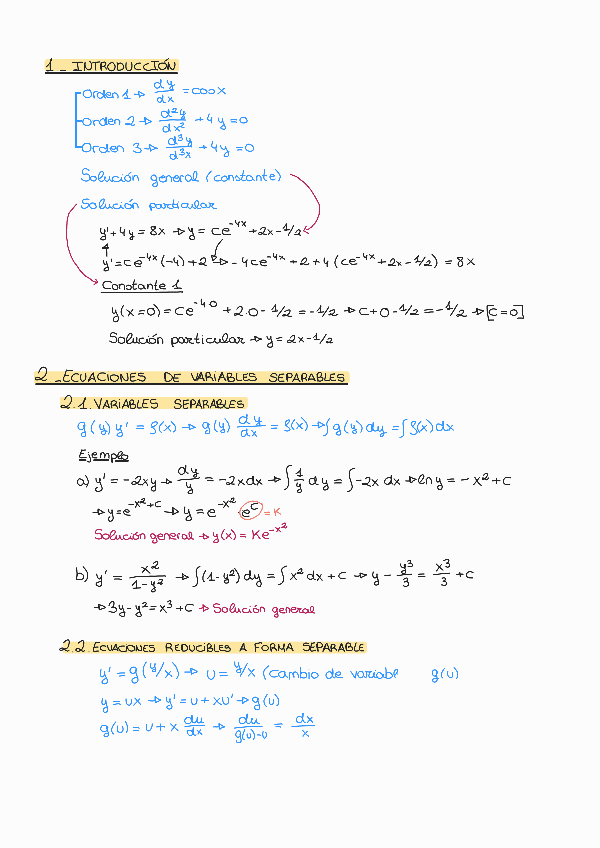 1_ INTRODUCCIÓN
Orden 1 → dy/dx = cos x
Orden 2 → d²y/dx² + 4y = 0
Orden 3 → d³y/d³x + 4y = 0
Solución general (constante)
Solución particular
y' + 4y = 8x → y = ce^-4x + 2x - 1/2
y' = ce^-4x (-4) + 2 → -4ce^-4x + 2 + 4 (ce^-4x + 2x - 1/2) = 8x
Constante 1
y(x=0) = ce^-4·0 + 2·0 - 1/2 = -1/2 → c + 0 - 1/2 = -1/2 → [c=0]
Solución particular → y = 2x - 1/2
2_ ECUACIONES DE VARIABLES SEPARABLES
2.1. VARIABLES SEPARABLES
g(y) y' = f(x) → g(y) dy/dx = f(x) → ∫g(y) dy = ∫f(x) dx
Ejemplo
a) y' = -2xy → dy/y = -2x dx → ∫ 1/y dy = ∫ -2x dx → ln y = -x² + c
→ y = e^-x²+c → y = e^-x² · e^c = K
Solución general → y(x) = Ke^-x²
b) y' = x²/1-y² → ∫(1-y²) dy = ∫x² dx + c → y - y³/3 = x³/3 + c
→ 3y - y² = x³ + c → Solución general
2.2. ECUACIONES REDUCIBLES A FORMA SEPARABLE
y' = g(y/x) → u = y/x (cambio de variabl g(u)
y = ux → y' = u + xu' → g(u)
g(u) = u + x du/dx → du/g(u)-u = dx/x